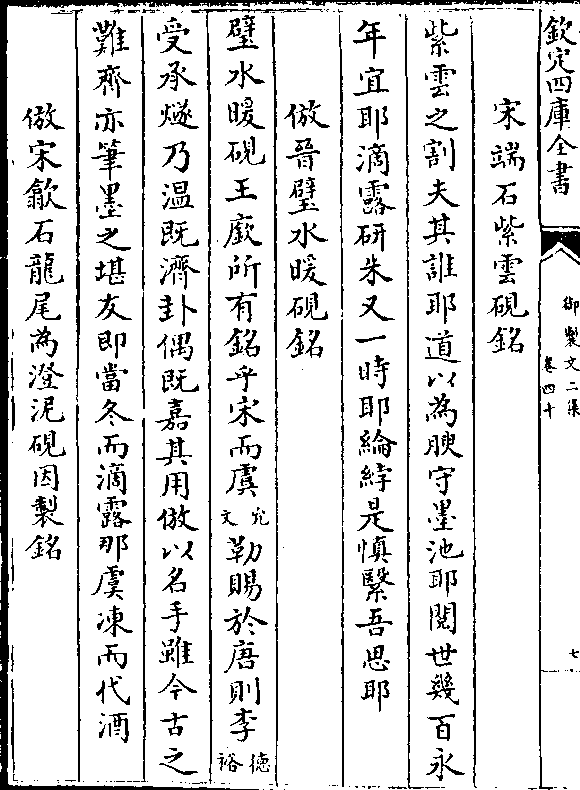 欽定四庫全書
御製文二集
卷四十
七
宋端石紫雲硯銘
紫雲之割夫其誰耶道以為腴守墨池耶閱世幾百永
年宜耶滴露研朱又一時耶綸綍是慎繄吾思耶
倣晉璧水暖硯銘
璧水暖硯王廞所有銘乎宋而虞允文勒賜於唐則李德裕
受承燧乃温既濟卦偶既嘉其用倣以名手雖今古之
難齊亦筆墨之堪友即當冬而滴露那虞凍而代酒
倣宋歙石龍尾為澄泥硯因製銘